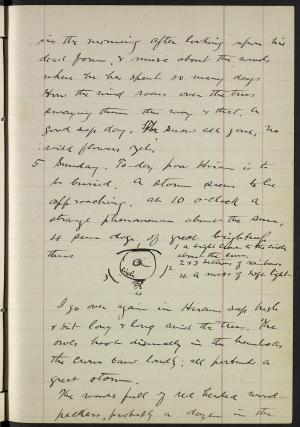 in the morning after looking upon his
dead form, & muse about the woods
where he has spent so many days
How the wind roars over the trees
swaying them this way & that. A
good sap day. The snow all gone, no
wild flowers yet.
5 Sunday. To-day poor Hiram is to
be buried. A storm seems to be
approaching. at 10 o-clock a
strange phenomenon about the sun,
4 sun dogs, of great brightness
thus
1 a bright circle to the circle
about the sun.
2 & 3 sections of rainbows
4 a mass of soft light
Sun
3
1
2
4
I go over again in Hirams sap bush
& sit long & long amid the trees. The
owls hoot dismally in the hemlocks
the crows caw loudly; all portends a
great storm.
The woods full of red headed wood-
peckers, probably a dozen in the